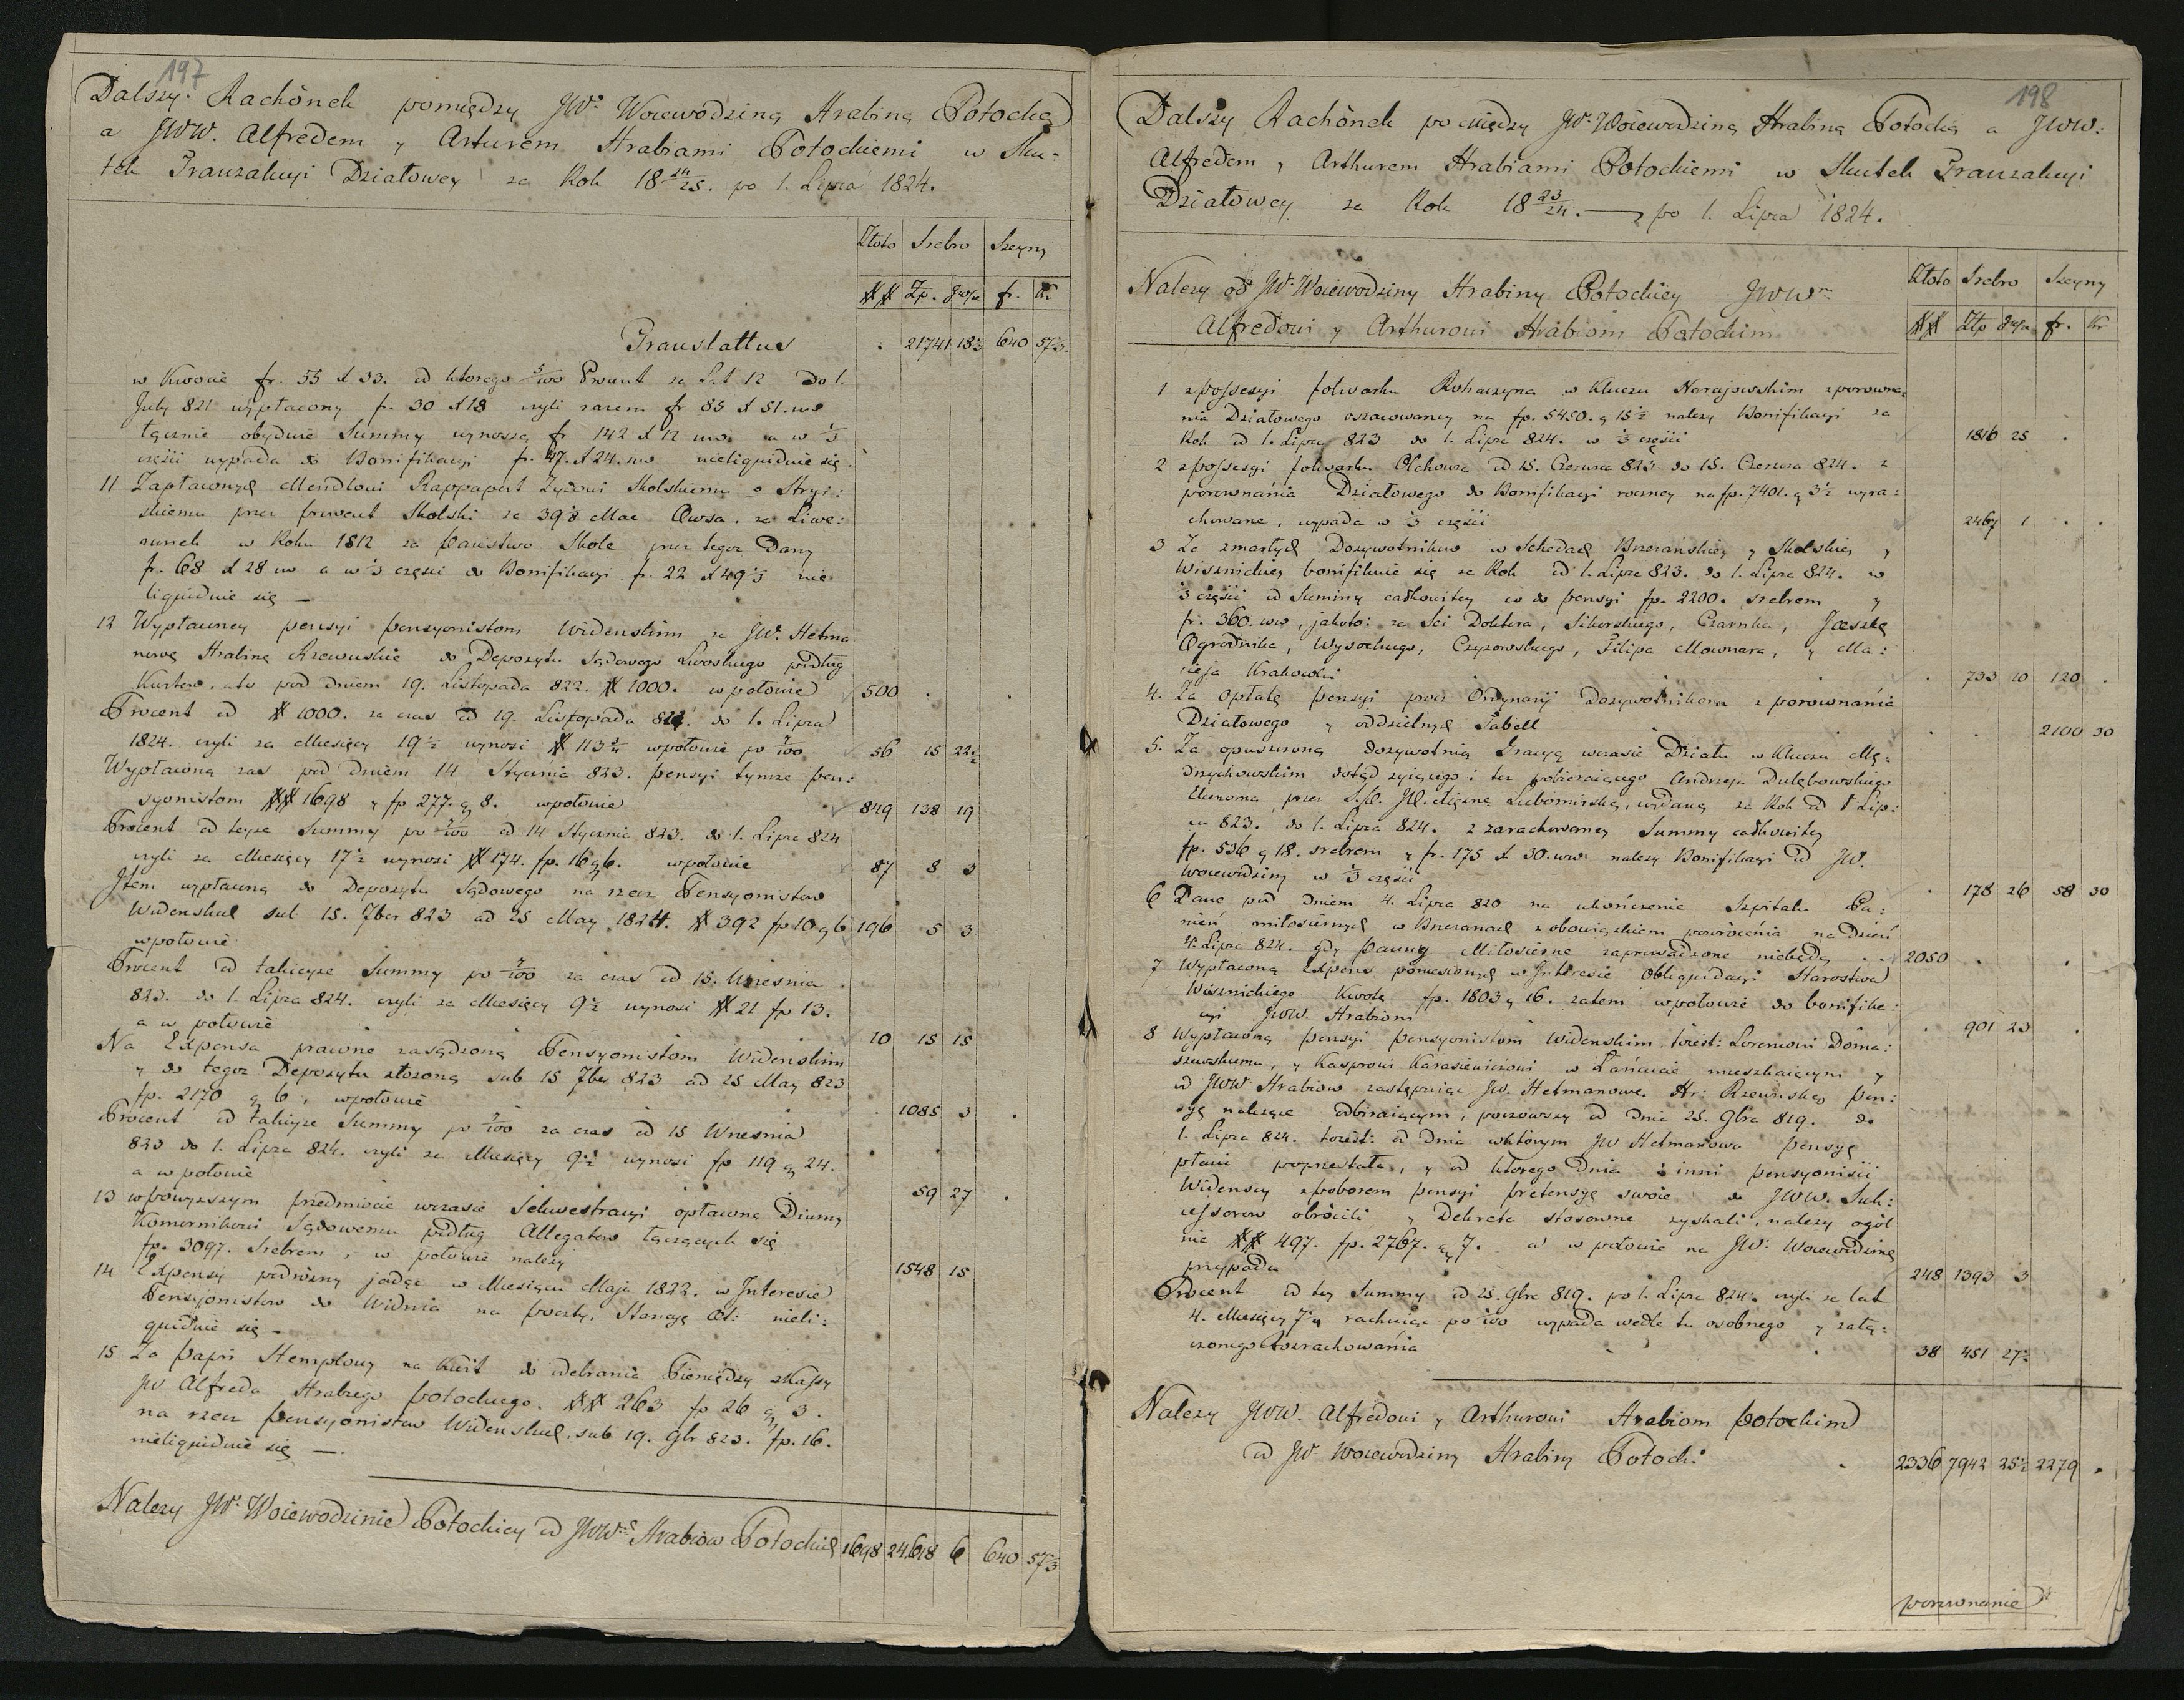 197
Dalszy Rachónek pomiędzy JWą Woiewodziną Hrabiną Potocką
a JWW. Alfredem y Arturem Hrabiami Potockiemi w Sku=
tek Tranzakcyi Działowey za Rok 18 24/25. po 1. Lipca 1824.
Złoto Srebro Szeyny
## Zp. gr/pl fr. Xr
Translattus . 21741 18⅓ 640 57⅓.
w Kwocie fr. 55 x 33. od ktorego 5/100 Procent za Lat 12 do 1.
July 821 wypłacony fr. 30 x 18 czyli razem fr 85 x 51. ww
łącznie obydwie Summy wynoszą fr 142 x 12 ww. a w ⅓
części wypada do Bonifikacyi fr. 47. x 24. ww nieliquiduie się.
11 Zapłaconych Mendlowi Rappaport Żydowi Skolskiemu o Stryi=
skiemu przez prowent Skolski za 39⅛ Mac Owsa. za Liwe=
runek w Roku 1812 za Państwo Skole przez tegoz Dany
fr. 68 x 28 ww a w ⅓ części do Bonifikacyi fr. 22 x 49⅓ nie
liquiduie się —
12 Wypłaconey pensyi pensyonistom Widenskim za JW. Hetma
nową Hrabinę Rzewuskie do Depozytu Sądowego Lwoskiego podług
Kwitow. ato pod dniem 19. Listopada 822. # 1000. wpołowie 500 . .
Procent od # 1000. za czas od 19. Listopada 822. do 1. Lipca
1824. czyli za Miesięcy 19½ wynosi # 113 wpołowie po 7/100 56 15 22½
Wypłaconą zas pod Dniem 14 Stycznia 823. pensyi tymze pen=
syonistom ## 1698 y fp 277. g 8. wpołowie 849 138 19
Procent od teyze Summy po 7/100 od 14 Stycznia 823. do 1. Lipca 824
czyli za Miesięcy 17½ wynosi # 174. fp. 16 g 6. wpołowie 87 8 3
Item wypłaconą do Depozytu Sądowego na rzecz Pensyonistow
Widenskich sub 15. 7ber 823 ad 25 May 1824. # 392 fp 10 g 6 196 5 3
wpołowie
Procent od takieyze Summy po 7/100 za czas od 15. Wrzesnia
823. do 1. Lipca 824. czyli za Miesięcy 9½ wynosi # 21 fp 13.
a w połowie 10 15 15
Na Expensa prawne zasądzoną Pensyonistom Widenskim
y do tegoz Depozytu złozoną sub 15 7ber 823 ad 25 May 823
fp. 2170 g 6, wpołowie . 1085 3 .
Procent od takieyze Summy po 7/100 za czas od 15 Wrzesnia
823 do 1. Lipca 824. czyli za Miesięcy 9½ wynosi fp 119 g 24.
a w połowie 59 27 .
13 wpowyzszym przedmiocie wczasie Sekwestracyi opłaconą Diurny
Komornikowi Sądowemu podług Allegatow łączących się
fp. 3097. Srebrem, w połowie nalezy 1548 15
14 Expensy podrózny jadąc w Miesiącu Maja 1822. w Interesie
Pensyonistow do Widnia na poczty, Stancyę etc: nieli=
quiduie się —
15 Za papir Stemplowy na Kwit do odebrania Pieniędzy zKassy
JW Alfreda Hrabiego Potockiego. ## 263 fp 26 g 3.
na rzecz Pensyonistow Widenskich. sub 19. 9br 823. fp. 16.
nieliquiduie się —.
Nalezy JWey Woiewodzinie Potockiey od JWWch Hrabiow Potockich 1698 24618 6 640 57⅓
198
Dalszy Rachónek pomiędzy JW. Woiewodziną Hrabiną Potocką a JWW:
Alfredem y Arthurem Hrabiami Potockiemi w Skutek Tranzakcyi
Działowey za Rok 18 23/24. — po 1. Lipca 1824.
Złoto Srebro Szeyny
## Ztp gr/pl fr. Xr
Nalezy od JW. Woiewodziny Hrabiny Potockiey JWWm
Alfredowi y Arthurowi Hrabiom Potockim
1 zpossesyi folwarku Rohaczyna w Kluczu Narajowskim zporowna=
nia Działowego oszacowaney na fp. 5450. g 15½ nalezy Bonifikacyi za
Rok od 1. Lipca 823 do 1. Lipca 824. w ⅓ części 1816 25 .
2 zpossesyi folwarku Olchowca od 15. Czerwca 823 do 15. Czerwca 824. z
porownania Działowego do Bonifikacyi roczney na fp. 7401. g 3½ wyra=
chowane, wypada w ⅓ części 2467 1 . .
3 Ze zmarłych Dozywotnikow w Schedach Brzezańskiey y Skolskiey y
Wisznickiey bonifikuie się za Rok od 1. Lipca 823. do 1. Lipca 824. w
⅓ części od Summy całkowitey co do pensyi fp. 2200. srebrem y
fr. 360. ww, jakoto: za Sci Doktora, Sikorskiego, Czarnka, Jaeszkę
Ogrodnika, Wysockiego, Czyzowskiego, Filipa Mownara, y Ma=
cieja Krakowski . 733 10 120 .
4. Za opłatę pensyi przez Ordynaryi Dozywotnikom z porownania
Działowego y oddzielnych Tabell . . 2100 30
5. Za opuszczoną dozywotnią Gracyą wczasie Działu w Kluczu Mę=
drzychowskim dotąd zyiącego i tez pobieraiącego Andrzeja Dulębowskiego
Ekonoma przez S.P. JO. Xiężnę Lubomirską, wydaną za Rok od 1 Lip=
ca 823. do 1. Lipca 824. z zarachowaney Summy całkowitey
fp. 536 g 18. srebrem y fr. 175 x 30. ww nalezy Bonifikacyi od JW.
Woiewodziny w ⅓ części . 178 26 58 30
6 Dane pod dniem 4. Lipca 820 na ukończenie Szpitalu Pa=
nien miłosiernych w Brzezanach z obowiązkiem powrócenia na Dzień
4. Lipca 824. gdy Panny Miłosierne zaprowadzone niebędą . . 2050 . . .
7 Wypłaconą Expens poniesionych w Interesie Obliquidacyi Starostwa
Wisznickiego Kwotę fp. 1803 g 16. zatem wpołowie do bonifika=
cyi JWW. Hrabiom . 901 23 .
8 Wypłaconą pensyi pensyonistom Widenskim. toiest: Lorencowi Doma=
szewskiemu, y Kasprowi Karasiewiczowi w Łańcucie mieszkaiącym y
od JWW Hrabiow zastępuiąc JW. Hetmanowe. Hr: Rzewuską pen=
syę nalezące odbiraiącym, począwszy od Dnia 25. 9bra 819. do
1. Lipca 824. toiest: od Dnia wktórym JW Hetmanowa pensyę
płacic poprzestała, y od ktorego Dnia i inni pensyoniści
Widenscy zpoborem pensyi pretensyę swoie do JWW. Suk=
cessorow obrócili y Dekreta stosowne zyskali, nalezy ogól
nie ## 497. fp. 2767. g 7. a w połowie na JW. Woiewodzinę
przypada 248 1393 3
Procent od tey Summy od 25. 9bra 819. po 1. Lipca 824. czyli za lat
4. Miesięcy 7¼ rachuiąc po /100 wypada wedle tu osobnego y załą=
czonego Porachowania . . 38 451 27½
Nalezy JWW. Alfredowi y Arthurowi Hrabiom Potockim
od JW. Woiewodziny Hrabiny Potocki . 2336 7942 25½ 2279 .
porownanie